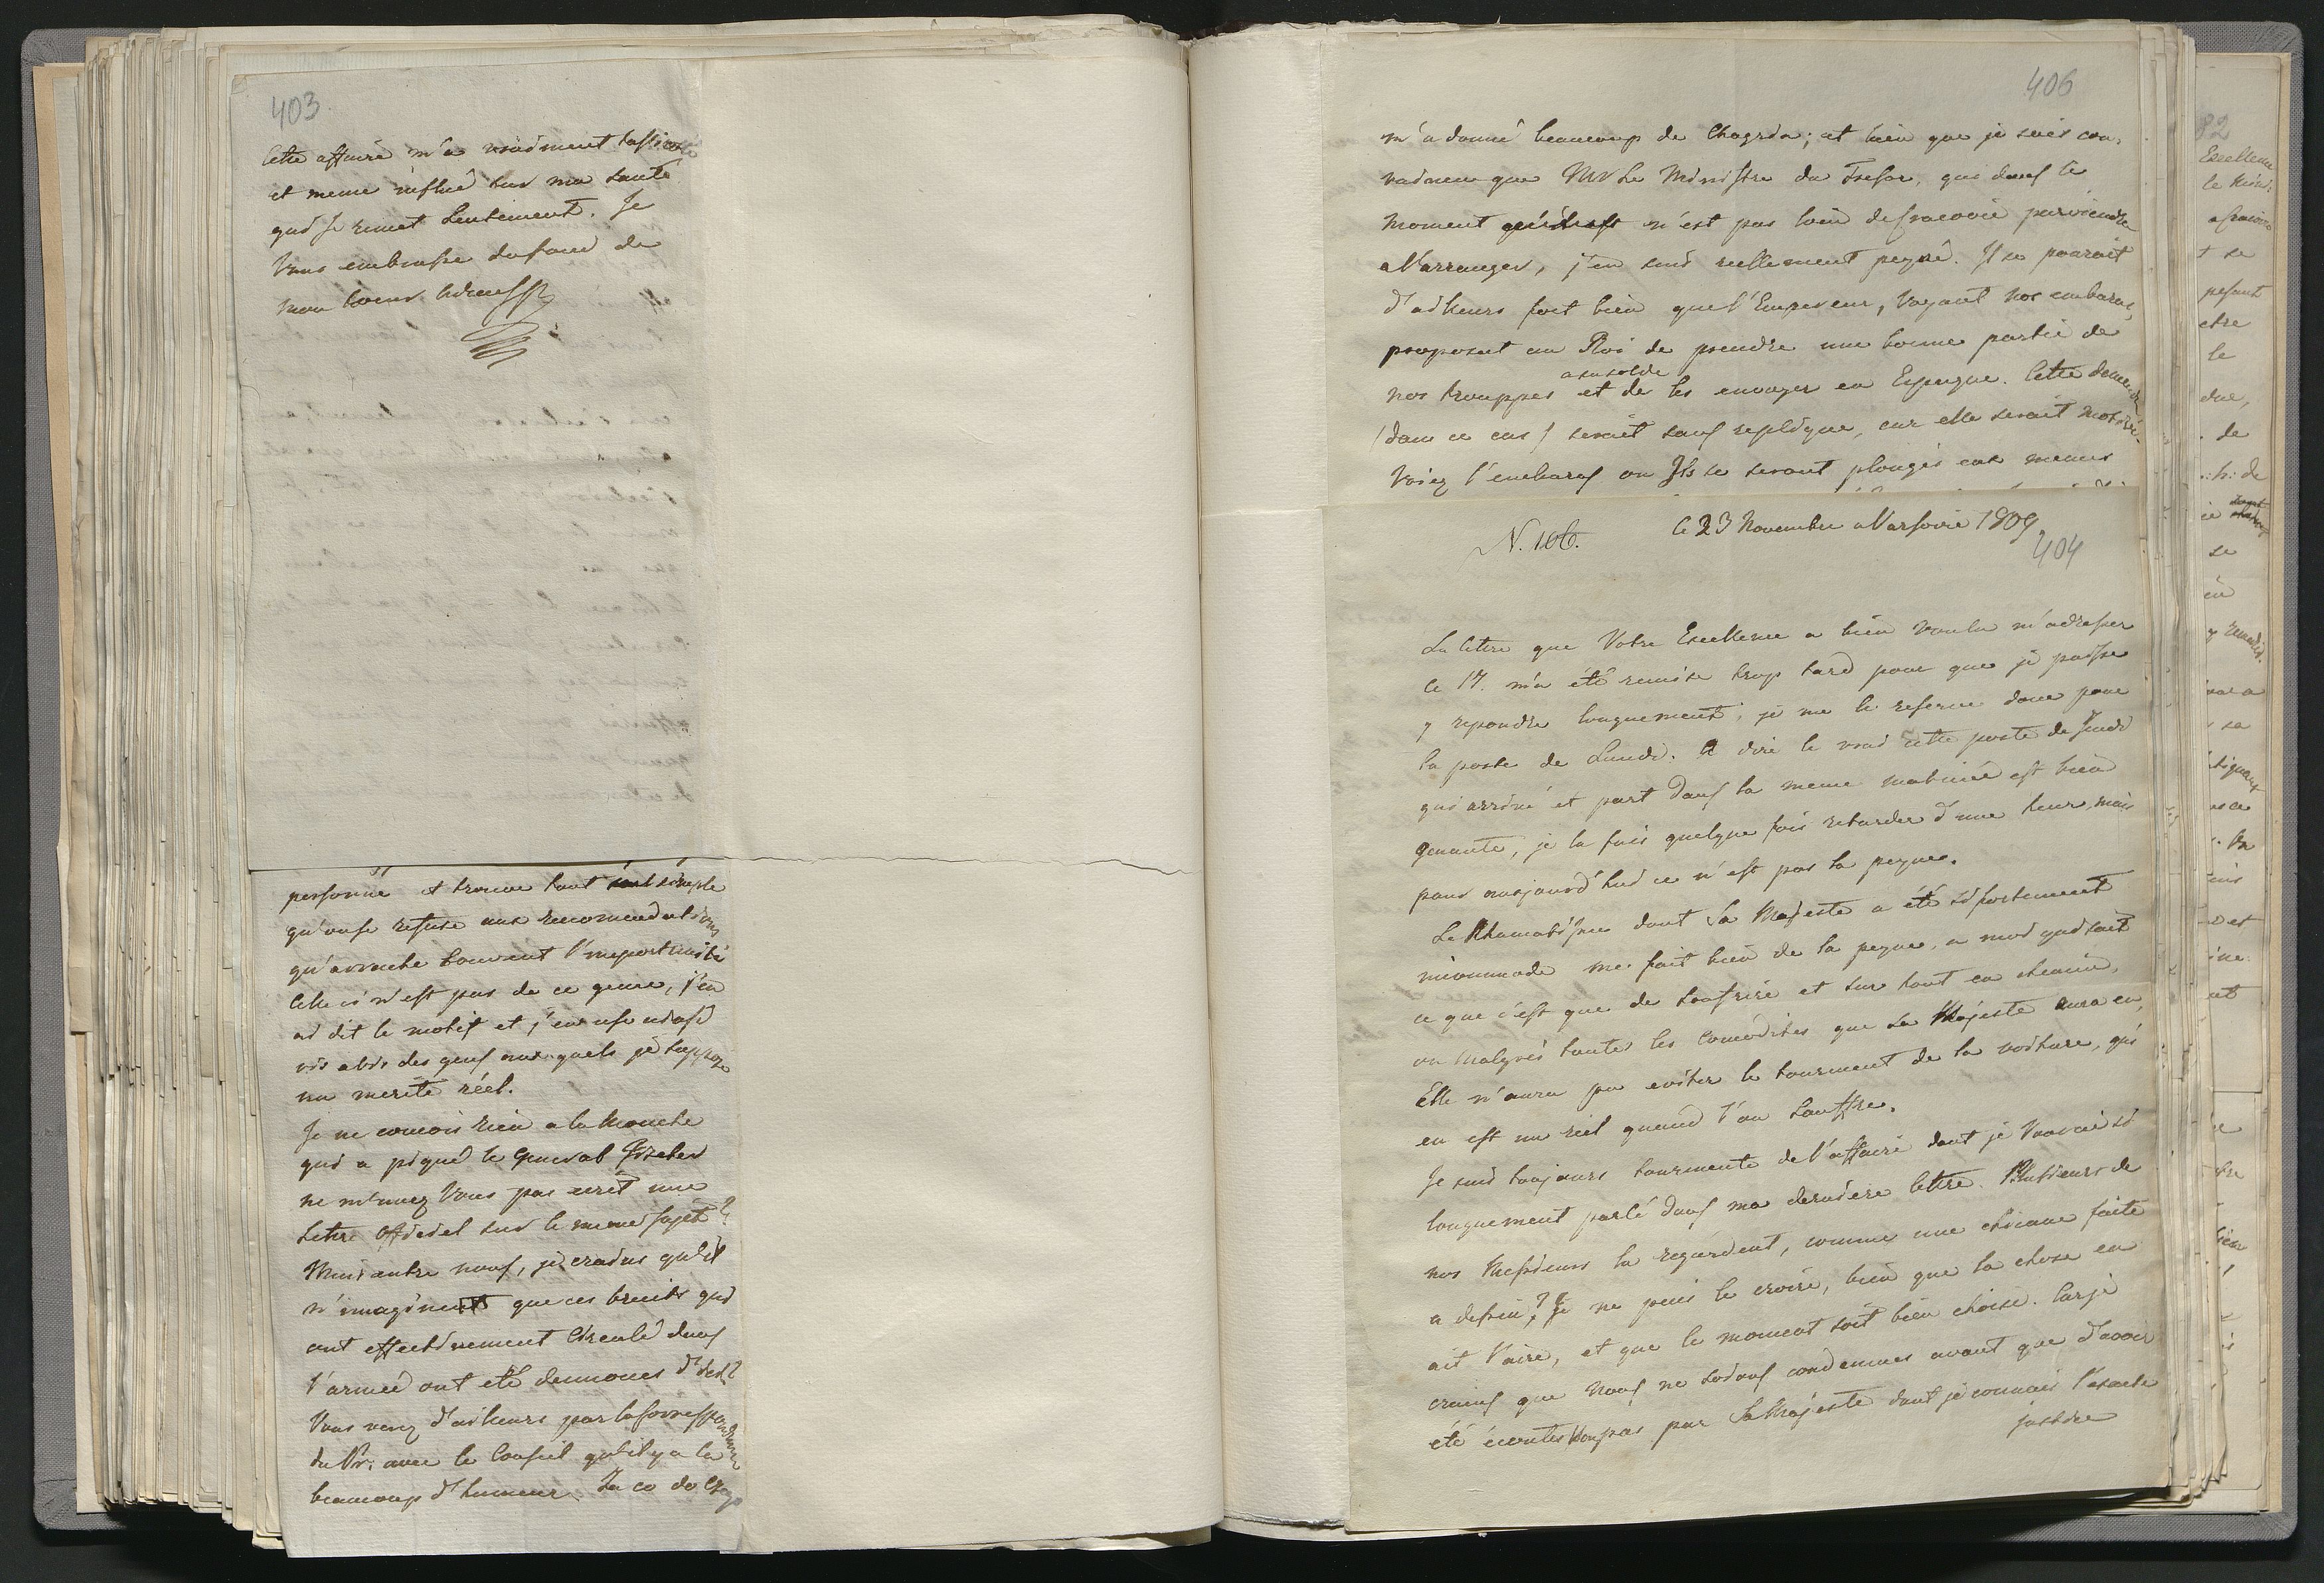 403
Cette affaire m'a vraiment tassicoté
et meme influé sur ma santé
qui se remet lentement. Je
Vous embrasse du fond de
mon coeur
personne et trouve tout simple
qu'on se refuse aux recomendations
qu'arrache souvent l'importunité
Celle ci n'est pas de ce genre, j'en
ai dit le motif et j'en use ainsi
vis a vis des gens aux quels je suppose
un merite réel.
Je ne concois rien a la Mouche
qui a piqué le General Fiszeher
ne m'avez Vous pas ecrit une
Lettre Officiel sur le meme sujet?
Mais entre nous, je crains qu'il
n'imaginent que ces bruits qui
ont effectivement circulé dans
l'armée ont eté
Vous verez d'ailleurs par la Correspondance
du Pr. avec le Conseil qu'il y a la
beaucoup d'humeur. Za co do Czego
406
m'a donné beaucoup de Chagrin; et bien que je suis con,
vaincu que Mr Le Ministre du Tresor, qui dans le
moment n'est pas loin de Cracovie parviendra
a l'arranger, j'en suis reellement peyné. Il se pourait
d'ailleurs fort bien que l'Empereur, Voyant nos embaras,
proposat au Roi de prendre une bonne partie de
a sa solde
nos trouppes et de les envoyer en Espagne. Cette demande
(dans ce cas) serait sans replique, car elle serait motivée
Voiez l'embaras ou Ils se seront plongés eux memes
N. 106. le 23 Novembre a Varsovie 1809
404
La lettre que Votre Excellence a bien voulu m'adresser
le 17. m'a été remise trop tard pour que je puisse
y repondre longuement, je me le reserve donc pour
la poste de Lundi. A dire le vrai cette poste de Jeudi
qui arrive et part dans la meme matinée est bien
genante, je la fais quelque fois retarder d'une heure, mais
pour aujourd'hui ce n'est pas la peyne.
Le Rhumatisme dont Sa Majesté a été si fortement
incommodé me fait bien de la peyne, a moi qui sait
ce que c'est que de soufrire et sur tout en chemin,
ou Malgrés toutes les Comodités que Sa Majesté aura eu,
Elle n'aura pu eviter le tourment de la voiture, qui
en est un réel quand l'on souffre.
Je suis toujours tourmenté de l'affaire dont je Vous ai si
longuement parlé dans ma derniere lettre. Plusieurs de
nos Messieurs la regardent, comme une chicane faite
a dessein, Je ne puis le croire, bien que la chose en
ait l'aire, et que le moment soit bien choisi. Car je
crains que Nous ne soions condamnés avant que d'avoir
été ecoutés Non pas par Sa Majesté dont je connais l'exacte
justice